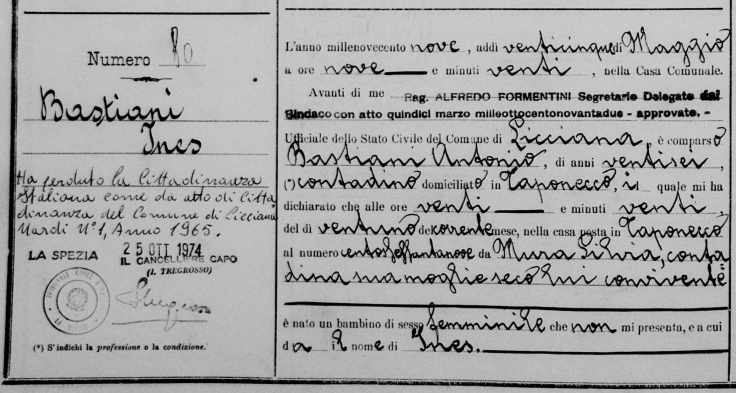 Numero 80
Bastiani
Ines
Ha perduto la Cittadinanza
Italiana come da atto di Citta
dinanza del Comune di Licciana
Nardi N° 1, Anno 1965.
LA SPEZIA 25 OTT 1974
IL CANCELLIERE CAPO
(I. TREGROSSO)
(*) S'indichi la professione o la condizione.
L'anno millenovecento nove, addì venticinque di Maggio
a ore nove e minuti venti, nella Casa Comunale.
Avanti di me Rag. ALFREDO FORMENTINI Segretario Delegato dal
Sindaco con atto quindici marzo milleottocentonovantadue - approvato. -
Ufficiale dello Stato Civile del Comune di Licciana, è comparso
Bastiani Antonio, di anni ventisei,
(*) contadino domiciliato in Taponecco, il quale mi ha
dichiarato che alle ore venti e minuti venti,
del dì ventuno del corrente mese, nella casa posta in Taponecco
al numero centosessantanove da Mura Silvia, conta
dina sua moglie seco lui convivente
è nato un bambino di sesso femminile che non mi presenta, e a cui
dà il nome di Ines.